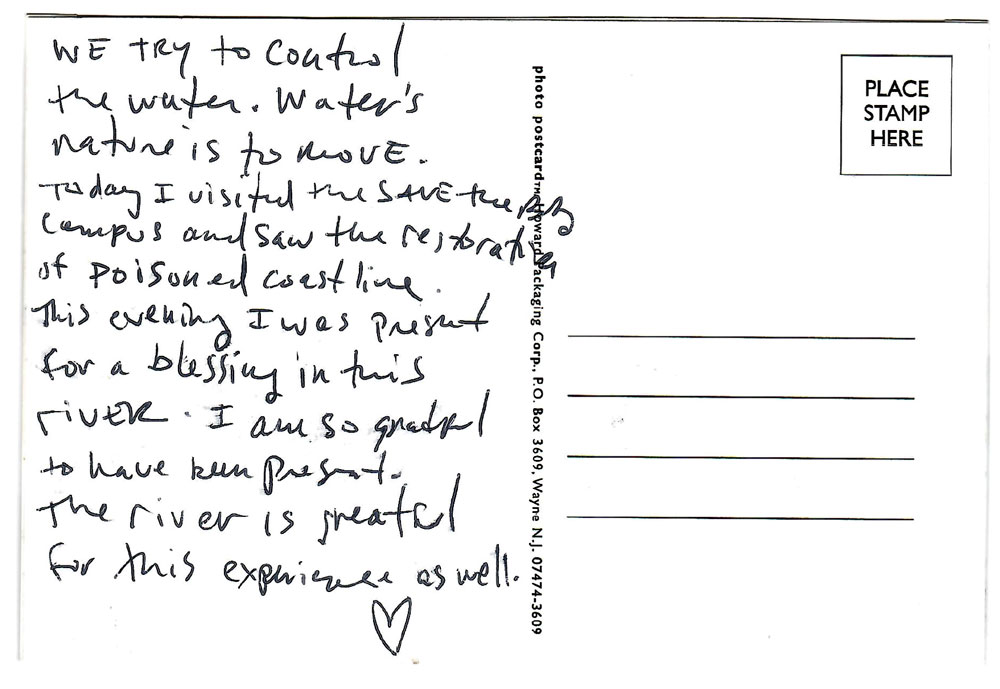 WE TRY to Control
the water. Water's
nature is to movE.
Today I visited the SAVE the Bay
Campus and saw the restoration
of poisoned coastline.
This evening I was present
for a blessing in this
rivER. I am so grateful
to have been present.
The river is greatful
for this experience as well.
♡
photo postcard™ Howard Packaging Corp., P.O. Box 3609, Wayne N.J. 07474-3609
PLACE
STAMP
HERE